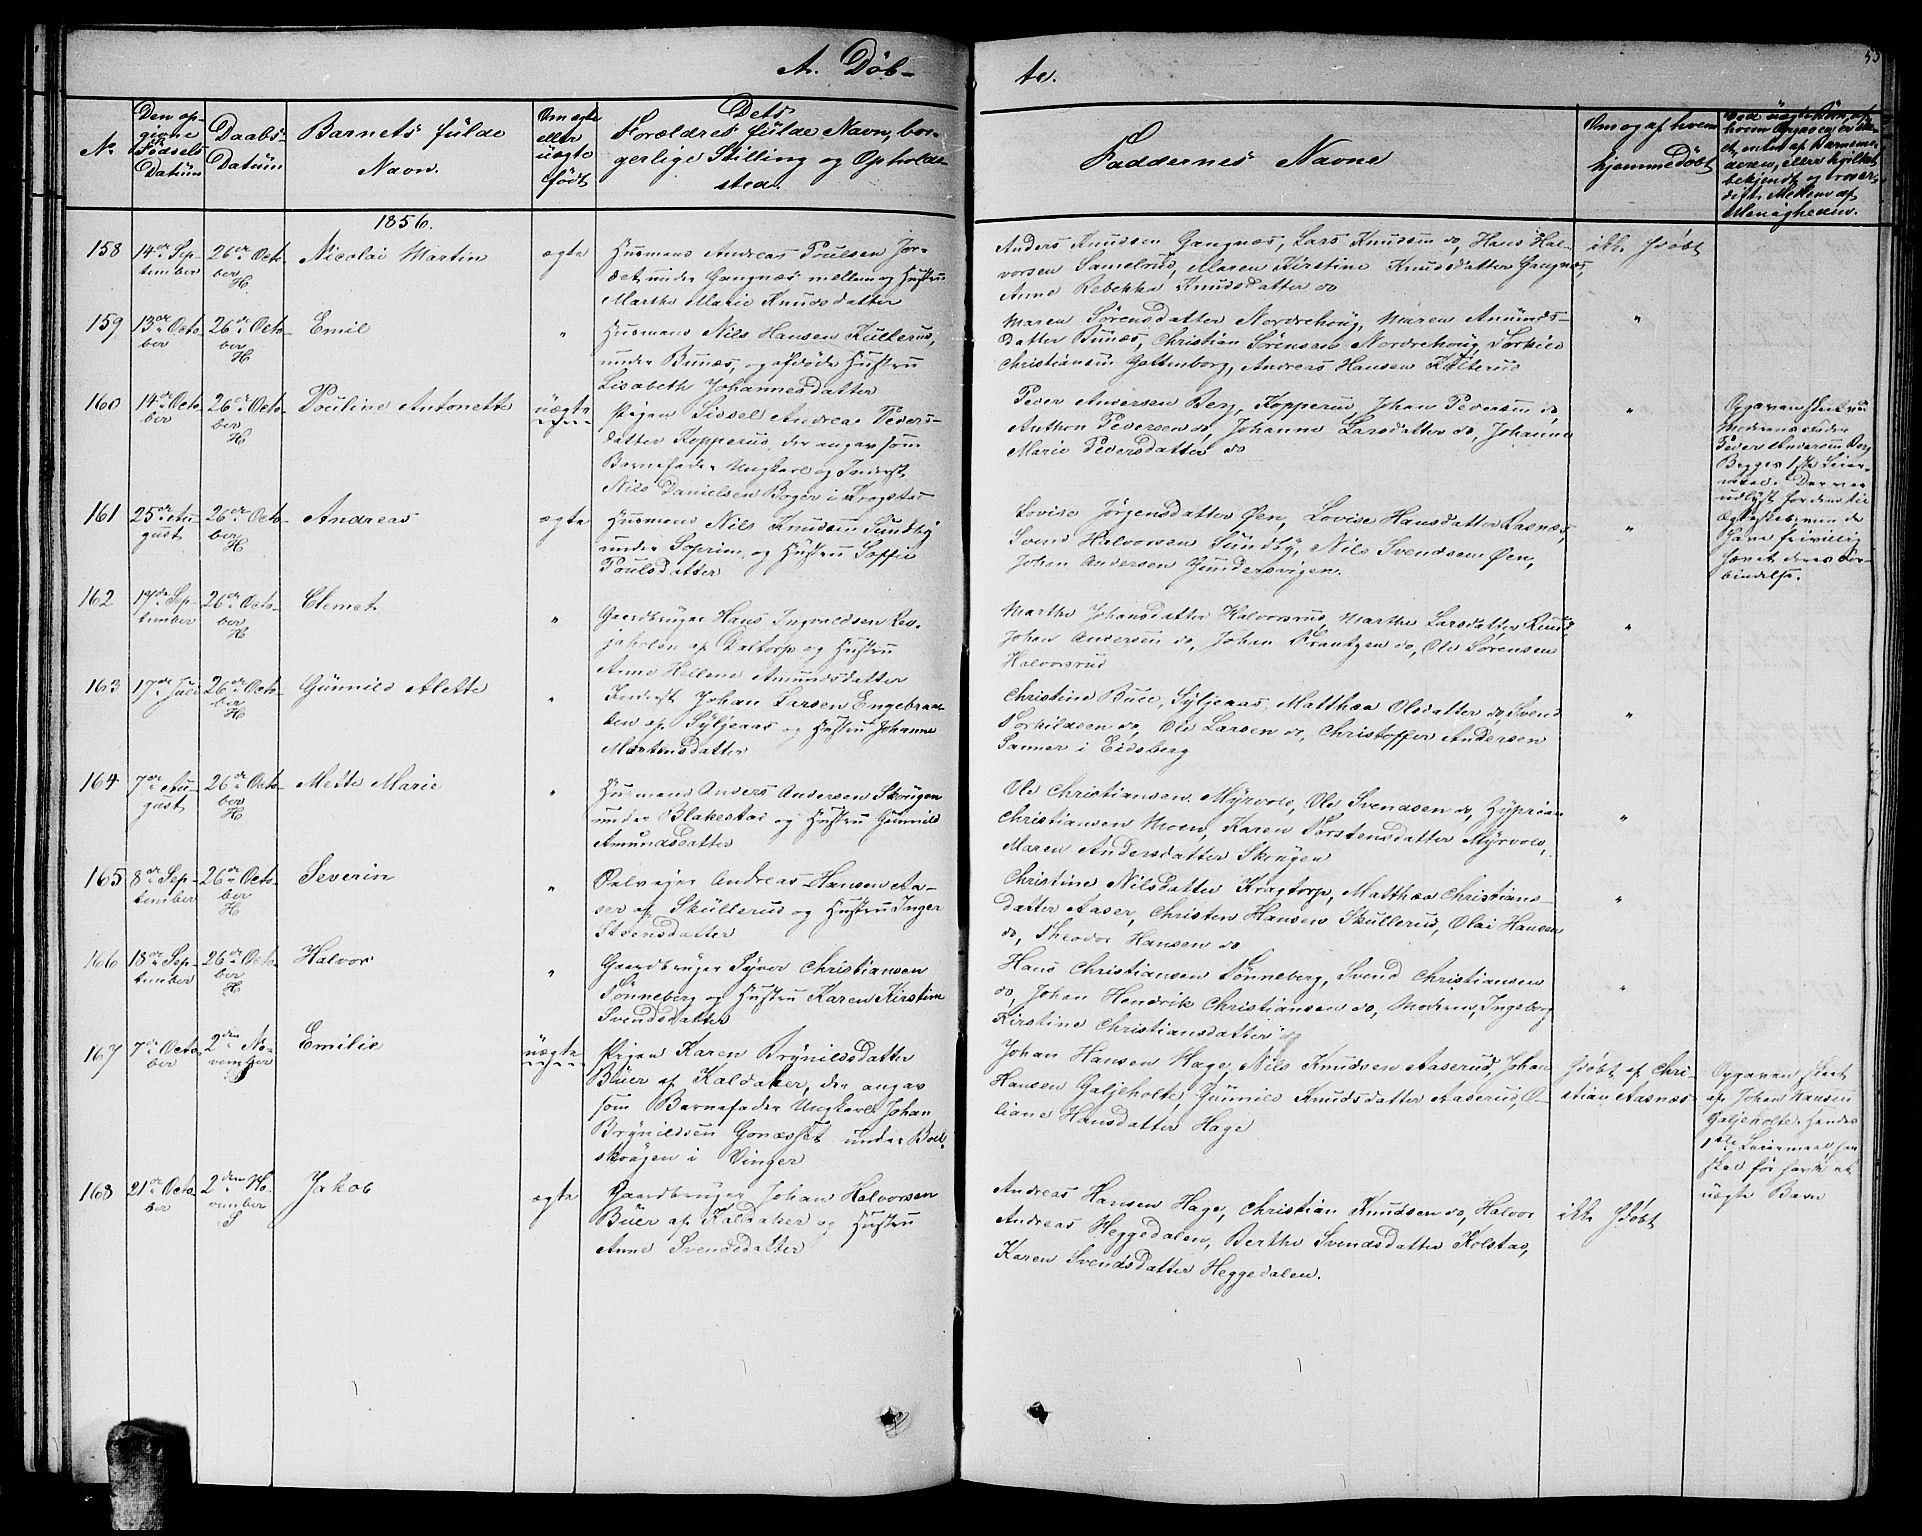 A. Döb-
te.
53
No
Den op-
givne
Födsels
Datüm
Daabs-
Datüm
Barnets fülde
Navn.
Om ægte
eller
uægte
födt
Dets
Forældres fülde Navn, bor-
gerlige Stilling og Opholds-
sted.
Faddernes Navne
Om og af hvem
hjemmedöbt
1856.
158
14de Sep-
tember
26de Octo-
ber
H.
Nicolai Martin
ægte
Husmand Andreas Poulsen Jor-
det under Gangnæs mellem og Hustru
Marthe Marie Knudsdatter
Anders Knudsen Gangnæs, Lars Knudsen do, Hans Hal-
vorsen Samelrud, Maren Kirstine Knudsdatter Gangnæs,
Anne Rebekka Knudsdatter do
ikke hdöbt
159
13de Octo-
ber
26de Octo-
ber
H
Emil
"
Husmand Nils Hansen Kullerud,
under Bunæs, og afdöde Hustru
Lisabeth Johannesdatter
Maren Sörensdatter Nordrehoug, Maren Amunds-
datter Bunæs, Christian Sörensen Nordrehoug, Torkild
Christiansen Gattenborg, Andreas Hansen Kolterud
"
160
14de Octo-
ber
26de Octo-
ber
H
Pouline Antonette
uægte
Pigen Sissel Andreas Peders-
datter Kopperud, der angav som
Barnefader Ungkarl og Inderst
Nils Danielsen Boger i Krogstad
Peder Andersen Berg, Kopperud, Johan Pedersen do,
Anthon Pedersen do, Johanne Larsdatter do, Johanne
Marie Pedersdatter do
"
Opgaven skeet ved
Moderens Fader
Peder Andersen Berg
Begges 1ste Leier-
maal. De vare
udlyst for dem til
Ægteskab, men de
have frivillig
hævet deres For-
bindelse.
161
25de Au-
gust
26de Octo-
ber
H
Andreas
ægte
Husmand Nils Knudsen Sundby
under Soprim, og Hustru Soffie
Poulsdatter
Lovise Jörgensdatter Öen, Lovise Hansdatter Rasnæs,
Svend Halvorsen Sundby, Nils Svendsen Öen,
Johan Andersen Gundersvigen.
"
162
17de Sep-
tember
26de Octo-
ber
H
Clemet
"
Gaardbruger Hans Ingvoldsen Rev-
jaholen af Daltorp og Hustru
Anne Hellene Amundsdatter
Marthe Johansdatter Halvorsrud, Marthe Larsdatter Ruud,
Johan Andersen do, Johan Frantzen do, Ole Sörensen
Halvorsrud
"
163
17de Juli
26de Octo-
ber
H
Günnild Alette
"
Inderst Johan Larsen Engebraa-
ten af Syljeaas og Hustru Johanne
Mortensdatter
Christine Buer, Syljeaas, Matthæa Olsdatter do, Svend
Torkildsen do, Ole Larsen do, Christoffer Andersen
Sanner i Eidsberg
"
164
7de Au-
gust
26de Octo-
ber
H
Mette Marie
"
Husmand Anders Andersen Skougen
under Blakestad og Hustru Günnild
Amundsdatter
Ole Christiansen Myrvold, Ole Svendsen do, Zyprian
Christiansen Moen, Karen Torstensdatter Myrvold,
Maren Andersdatter Skougen
"
165
8de Sep-
tember
26de Octo-
ber
H
Severin
"
Selveier Andreas Hansen Aa-
ser af Skullerud og Hustru Inger
Steensdatter
Christine Nilsdatter Kragtorp, Matthæa Christians-
datter Aaser, Christen Hansen Skullerud, Olai Hansen
do, Theodor Hansen do
"
166
18de Sep-
tember
26de Octo-
ber
H
Halvor
"
Gaardbruger Syver Christiansen
Tönneberg og Hustru Karen Kirstine
Svendsdatter
Hans Christiansen Tönneberg, Svend Christiansen
do, Johan Hendrik Christiansen do, Moderen, Ingeborg
Kirstine Christiansdatter do
"
167
7de Octo-
ber
2den No-
vember
S
Emilie
uægte
Pigen Karen Brynildsdatter
Büer af Kaldaker, der angav
som Barnefader Ungkarl Johan
Brynildsen Gonæsset under Bol-
skougen i Vinger
Johan Hansen Hage, Nils Knudsen Aaserud, Johan
Hansen Galjeholte, Günnild Knudsdatter Aaserud, O-
liane Hansdatter Hage
hdöbt af Chri-
stian Aasnæs
Opgaven skeet
af Johan Hansen
Galjeholte. Hendes
1ste Leiermaal, han
skal för havt et
uægte Barn
168
21de Octo-
ber
2den No-
vember
S
Jakob
ægte
Gaardbruger Johan Halvorsen
Büer af Kaldaker og Hustru
Anne Svendsdatter
Andreas Hansen Hage, Christian Knudsen do, Halvor
Andreas Heggedalen, Berthe Svendsdatter Kolstad,
Karen Svendsdatter Heggedalen.
ikke hdöbt